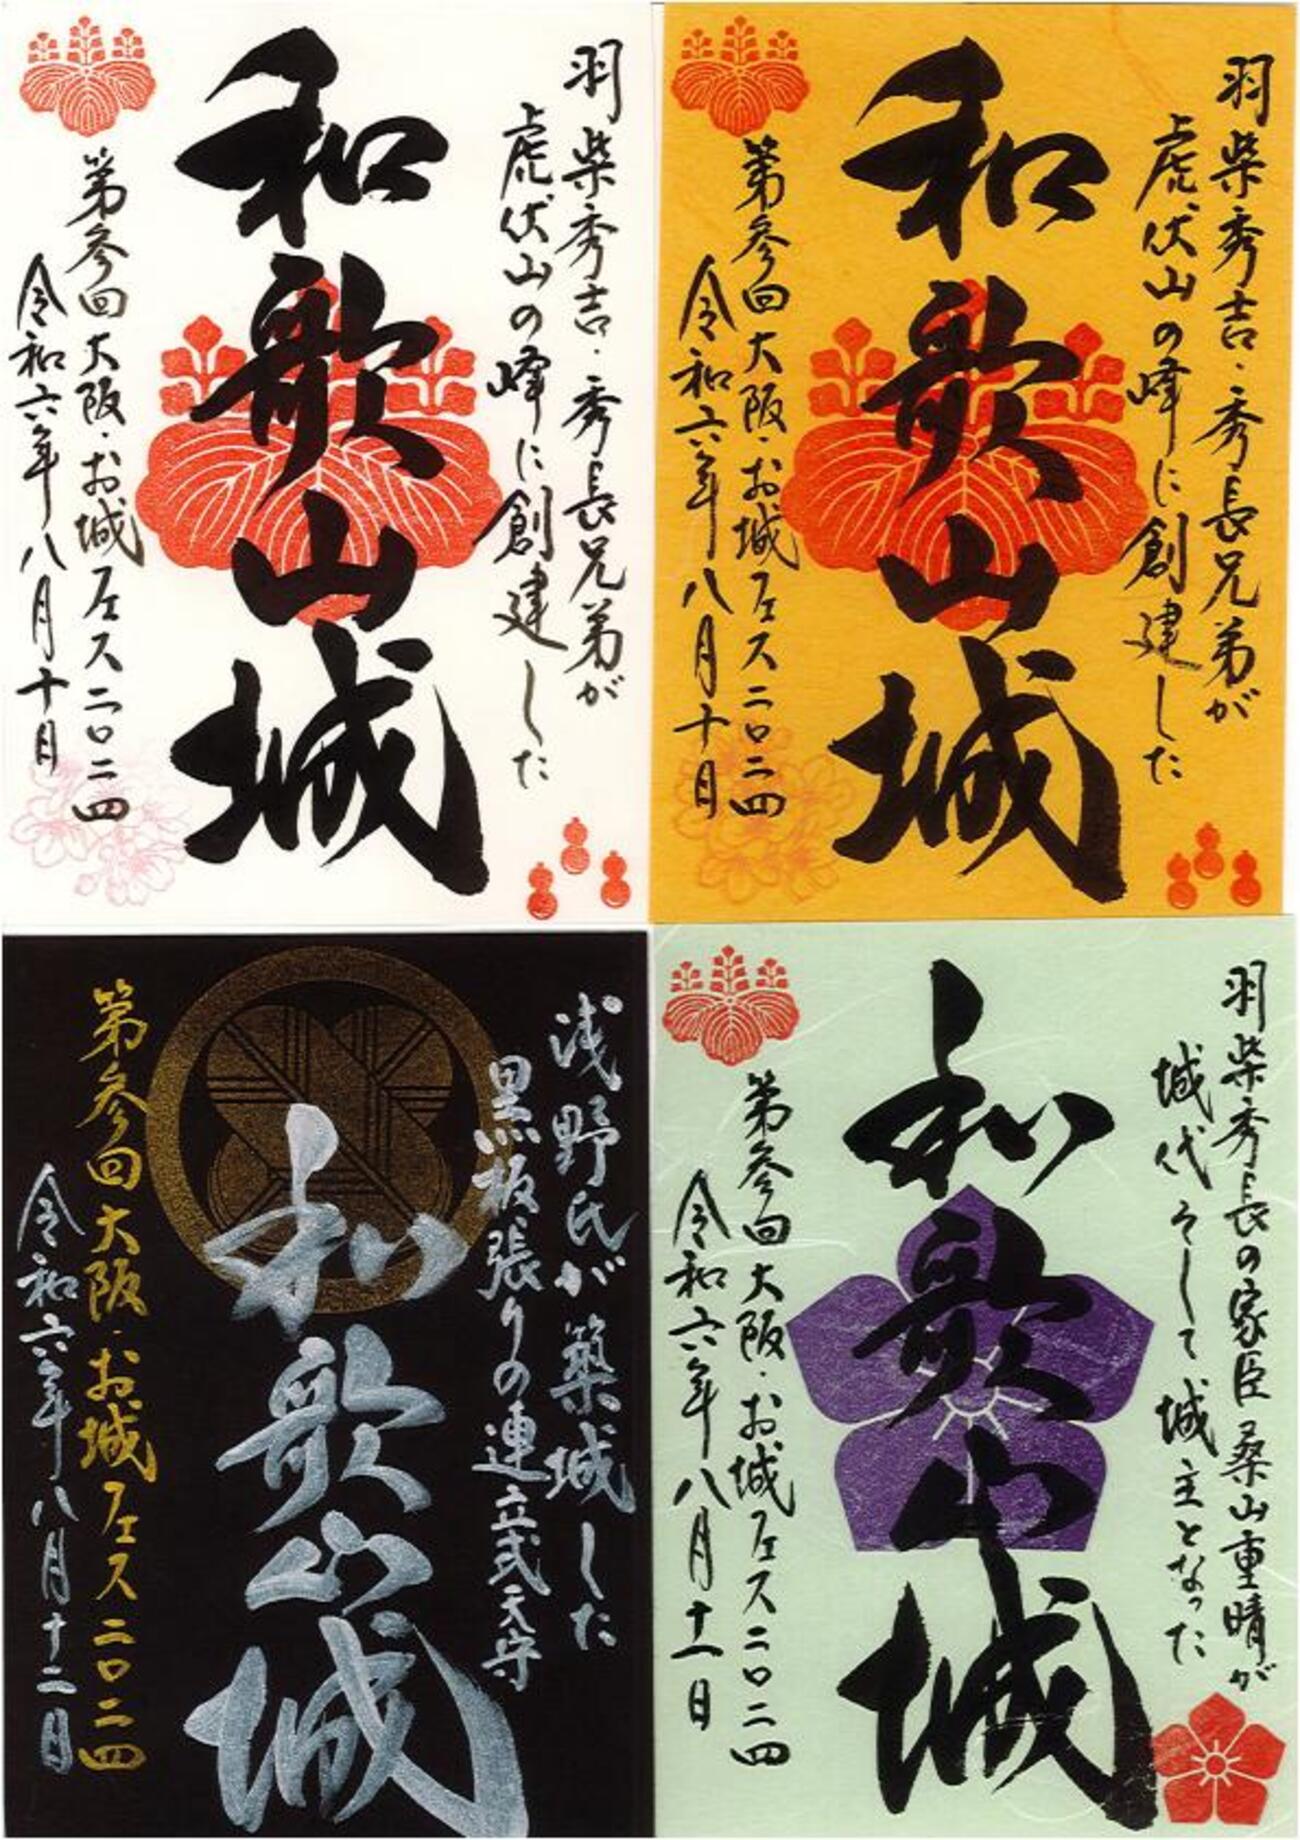 羽柴秀吉・秀長兄弟が
虎伏山の峰に創建した
和歌山城
第参回大阪・お城フェス二〇二四
令和六年八月十日
羽柴秀吉・秀長兄弟が
虎伏山の峰に創建した
和歌山城
第参回大阪・お城フェス二〇二四
令和六年八月十日
浅野氏が築城した
黒板張りの連立式天守
和歌山城
第参回大阪・お城フェス二〇二四
令和六年八月十二日
羽柴秀長の家臣桑山重晴が
城代そして城主となった
和歌山城
第参回大阪・お城フェス二〇二四
令和六年八月十一日